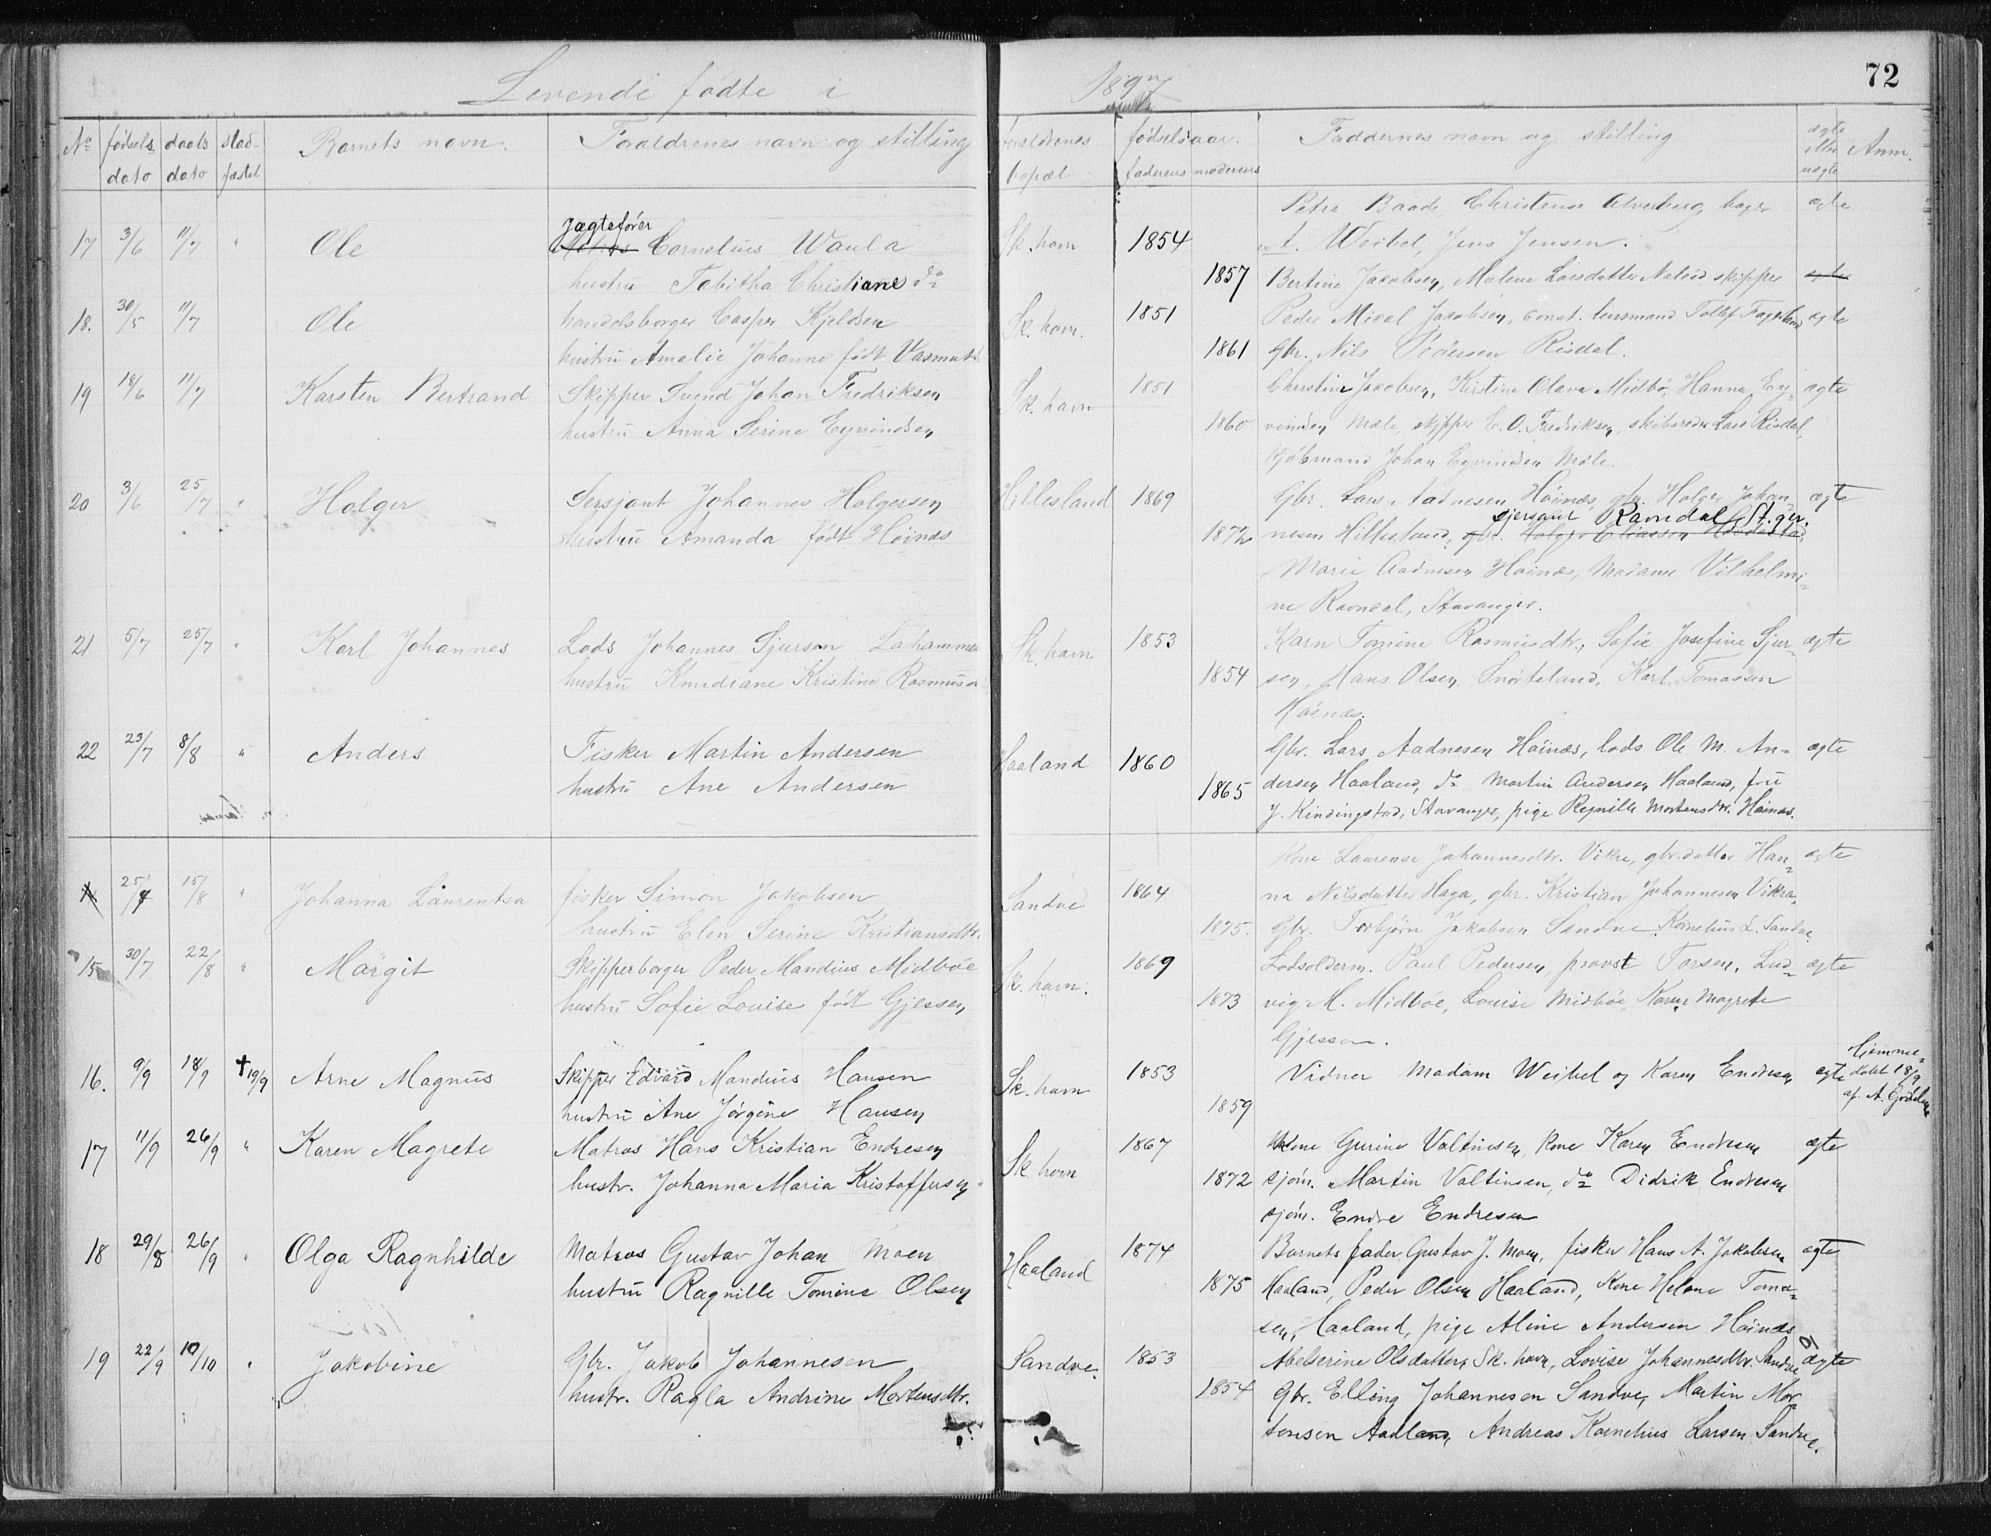 Levende fødte i 1897
72
No fødsels dato daabs dato stad- fæstet Barnets navn. Forældrenes navn og stilling forældrenes bopæl fødselsaar. faderens moderens Faddernes navn og stilling ægte eller uægte Anm.
Petra Baade, Christense Alverberg, ægte
17 3/6 11/7 " Ole Jægtefører Cornelius Waula Sk. havn 1854 A. Weibel, Jens Jensen.
hustru Tabitha Christiane do 1857 Bertine Jacobsen, Malene Larsdatter skipper
18. 30/5 11/7 Ole handelsborger Casper Kjeldsen Sk. havn. 1851 Peder Mical Jacobsen, const. lensmand Tollef ægte
hustru Amalie Johanne født 1861 Gbr. Nils Pedersen Risdal.
19 18/6 11/7 Karsten Bertrand Skipper Svend Johan Fredriksen Sk. havn 1851 Christine Jacobsen, Kirtine Olava Midbø, Hanna Ey- ægte
hustru Anna Serine Eyvindsen 1860 vindsen Mæle, skipper E. O. Fredriksen, skibsreder Lars Risdal,
Kjøbmand Johan Eyvindsen Mæle.
20 3/6 25/7 " Holger Sersjant Johannes Holgersen Hillesland 1869 Gbr. Lars Aadnesen Høinæs, gbr. Holger Johan- ægte
sjersant Ravndal, St.ger.
hustru Amanda født Høinæs 1872 nesen Hillesland,
Marie Aadnesen Høinæs, Madame Vilhelmi-
ne Ravndal, Stavanger.
21 5/7 25/7 " Karl Johannes Lods Johannes Sjurson Lahammer Sk. havn 1853 Karn Tomine Rasmusdtr., Sofie Josefine Sjur- ægte
hustru Knudiane Kristine 1854 sen, Hans Olsen Snörteland, Karl Tomassen
Høinæs.
22 23/7 8/8 " Anders Fisker Martin Andersen Haaland 1860 Gbr. Lars Aadnesen Høinæs, lods Ole M. An- ægte
hustru Ane Andersen 1865 dersen Haaland, do Martin Andersen Haaland, fru
J. Kindingstad, Stavanger, pige Regnille Mortensdtr. Høinæs.
Kone Laurense Johannesdtr. Vikre, gbr.datter Han- ægte
25/7 15/8 " Johanna Laurentsa fisker Simon Jakobsen Sandve 1864 na Nilsdatter Haga, gbr. Kristian Johannesen Vikra,
hustru Elen Serine Kristiansdtr. 1875. Gbr. Torbjørn Jakobsen Sandve. Kornelius L. Sandve.
15 30/7 22/8 " Margit Skipperborger Peder Mandius Midbøe Sk. havn. 1869 Lodsolderm. Paul Pedersen, provst Torsen, Lud- ægte
hustru Sofie Louise født Gjessen, 1873 vig M. Midbøe, Louise Midbøe, Karen Magrete
Gjessen.
16. 9/9 18/9 † 19/9 Arne Magnus Skipper Edvard Mandius Hansen Sk. havn 1853 Vidner Madam Weibel og Karen Endresen ægte hjemme- døbt 18/9 af A.
hustru Ane Jörgine Hansen 1859
17 11/9 26/9 " Karen Magrete Matros Hans Kristian Endresen Sk. havn 1867 Kone Gurine Valtinsen, kone Karen Endresen ægte
hustr. Johanna Maria Kristoffersen 1872 sjöm. Martin Valtinsen, do Didrik Endresen
sjöm. Endre Endresen
18 29/8 26/9 " Olga Ragnhilde Matros Gustav Johan Moen Haaland 1874 Barnets fader Gustav J. Moen, fisker Hans A. Jakobsen ægte
hustru Ragnille Tomine Olsen 1875 Haaland, Peder Olsen Haaland, Kone Helene Toma-
sen, Haaland, pige Aline Andersen Høinæs
19 22/9 10/10 " Jakobine Gbr. Jakob Johannesen Sandve. 1853 Abelserine Olsdatter, Sk. havn, Lovise Johannesdtr. Sandve ægte
hustr. Ragla Andrine Mortensdtr. 1854 Gbr. Elling Johannesen Sandve, Martin Mor-
tensen Aadland, Andreas Kornelius Larsen Sandve.